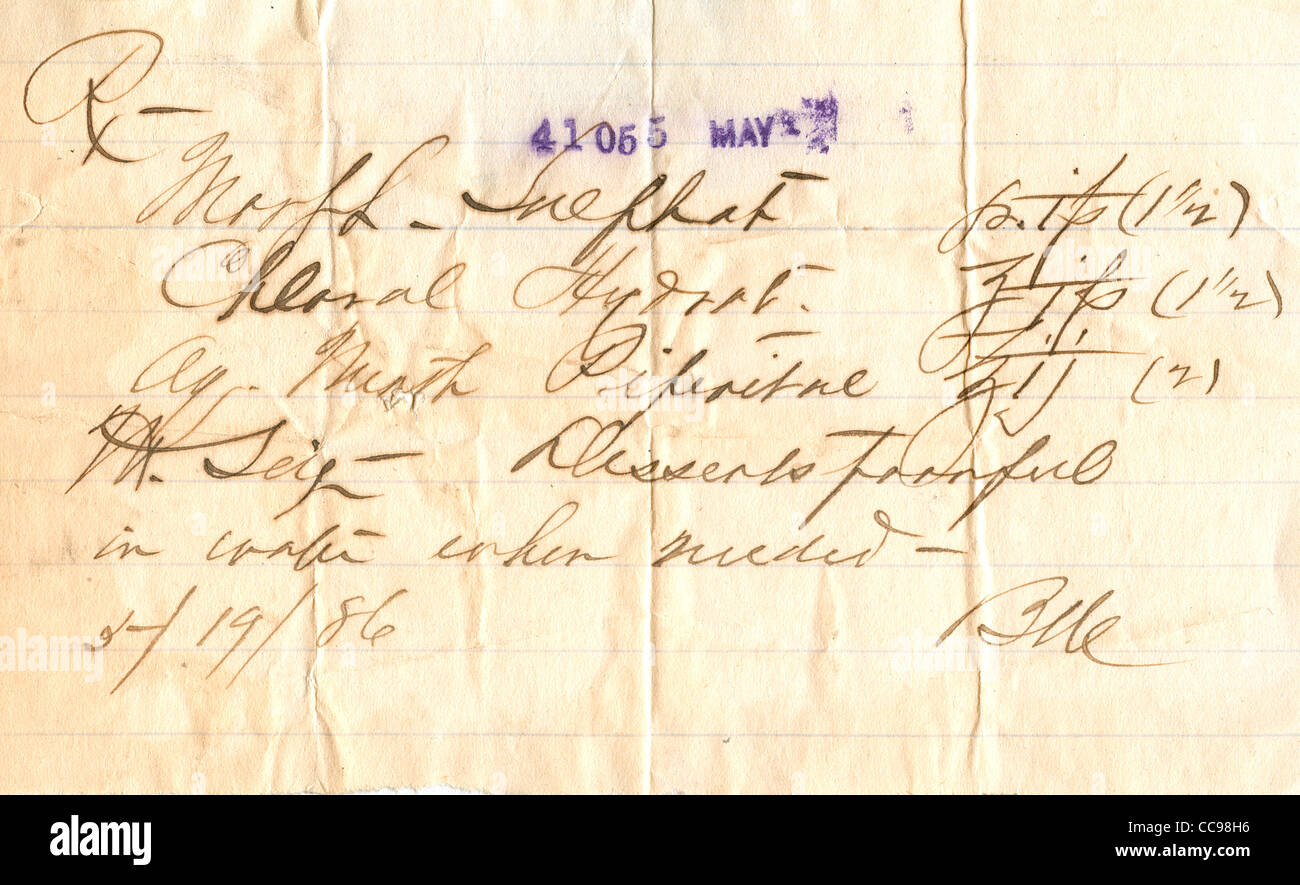 Rx—
41055 MAY
Morph. Sulphat gr. iſs (1 1/2)
Chloral Hydrat. ʒ iſs (1 1/2)
Aq. Menth Piperitae ℥ ij (2)
M. Sig— Dessertspoonful
in water when needed—
5/19/86
alamy
Image ID: CC98H6
www.alamy.com